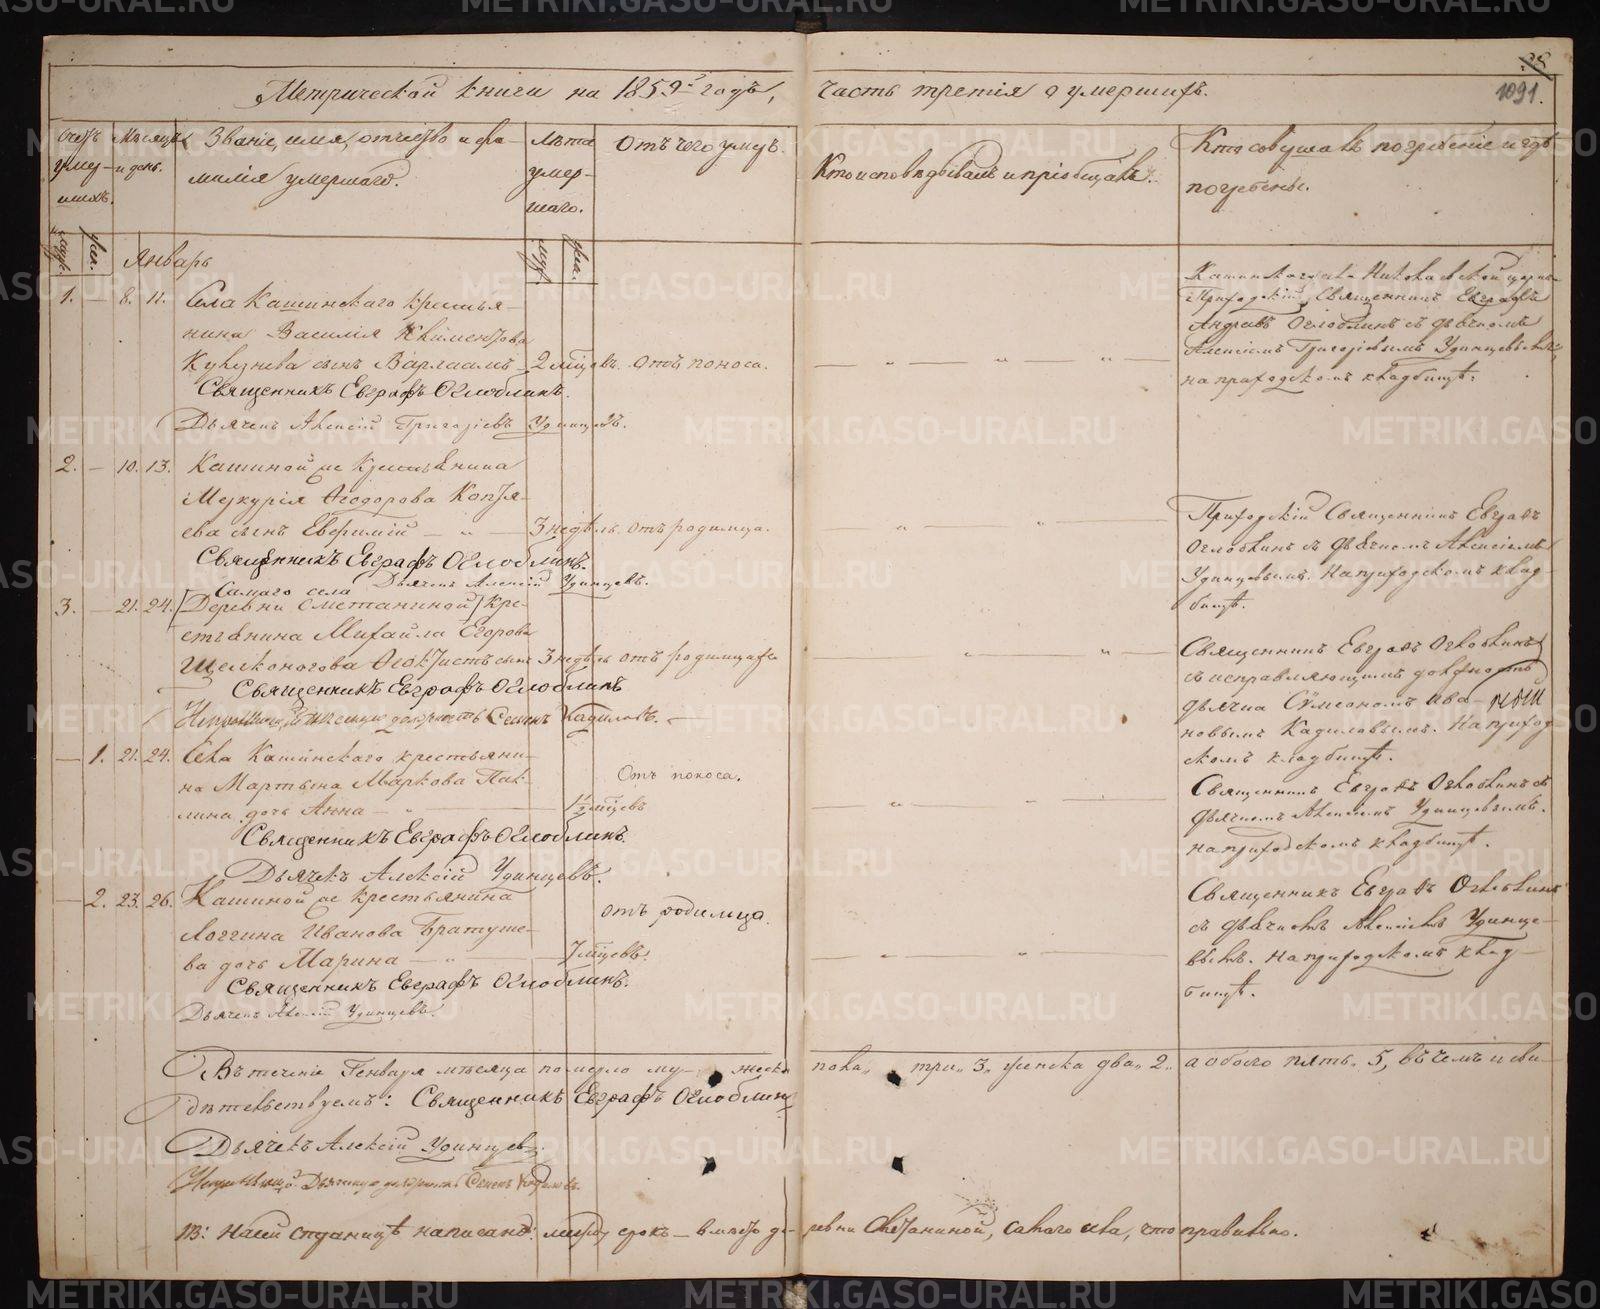 1091.
Метрической книги на 1859й годъ, часть третія о умершихъ.
Счетъ умершихъ.
Мѣсяцъ и день.
Званіе, имя, отчество и фамилія умершаго.
Лѣта умершаго.
Отъ чего умеръ.
Кто исповѣдывалъ и пріобщалъ.
Кто совершалъ погребеніе и гдѣ
погребены.
муж. жен. Январь муж. жен.
1. — 8. 11. Села Кашинскаго крестья-
нина Василія Климентова
сынъ Варлаамъ 2 мѣсцевъ. отъ поноса.
Священникъ Евграфъ Оглоблинъ.
Дьячекъ Алексій Григоріевъ Удинцевъ.
Кашинскаго села Николаевской церкви
Приходскій Священникъ Евграфъ
Андреевъ Оглоблинъ съ дьячкомъ
Алексіемъ Григоріевымъ Удинцевымъ
на приходскомъ кладбищѣ.
2. — 10. 13. Кашиной же Крестьянина
Меркурія Ѳеодорова Коптя-
ева сынъ Евфимій — „ — 3 недѣль. отъ родимца.
Священникъ Евграфъ Оглоблинъ.
Дьячекъ Алексій Удинцевъ.
Приходскій Священникъ Евграфъ
Оглоблинъ съ дьячкомъ Алексіемъ
Удинцевымъ. На приходскомъ клад-
бищѣ.
Самаго села
3. — 21. 24. [Деревни Сметаниной] Кре-
стьянина Михайла Егорова
Щелконогова Ѳеоктистъ сынъ 3 недѣль отъ родимца
Священникъ Евграфъ Оглоблинъ
должность Семенъ Кадиловъ.
Священникъ Евграфъ Оглоблинъ
съ исправляющимъ должность
дьячка Симеономъ Ива-
новымъ Кадиловымъ. На приход-
скомъ кладбищѣ.
— 1. 21. 24. Села Кашинскаго крестьяни-
на Мартына Маркова Пак-
лина дочь Анна — „ — 1½ мѣсцевъ Отъ поноса.
Священникъ Евграфъ Оглоблинъ.
Дьячекъ Алексій Удинцевъ.
Священникъ Евграфъ Оглоблинъ съ
дьячкомъ Алексіемъ Удинцевымъ.
на приходскомъ кладбищѣ.
— 2. 23. 26. Кашиной же крестьянина
Логгина Иванова Братуше-
ва дочь Марина — „ — 7 мѣсцевъ. отъ родимца.
Священникъ Евграфъ Оглоблинъ.
Дьячекъ Алексій Удинцевъ.
Священникъ Евграфъ Оглоблинъ
съ дьячкомъ Алексіемъ Удинце-
вымъ. На приходскомъ клад-
бищѣ.
Въ теченіе Генваря мѣсяца померло му- жеска пола „ три „ 3 „ женска два „ 2 „ а обоего пять „ 5, въ чемъ и сви-
дѣтельствуемъ: Священникъ Евграфъ Оглоблинъ
Дьячекъ Алексій Удинцевъ.
должность Семенъ Кадиловъ.
на сей страницѣ написано: между строкъ — вмѣсто де- ревни Сметаниной, самаго села, что правильно.